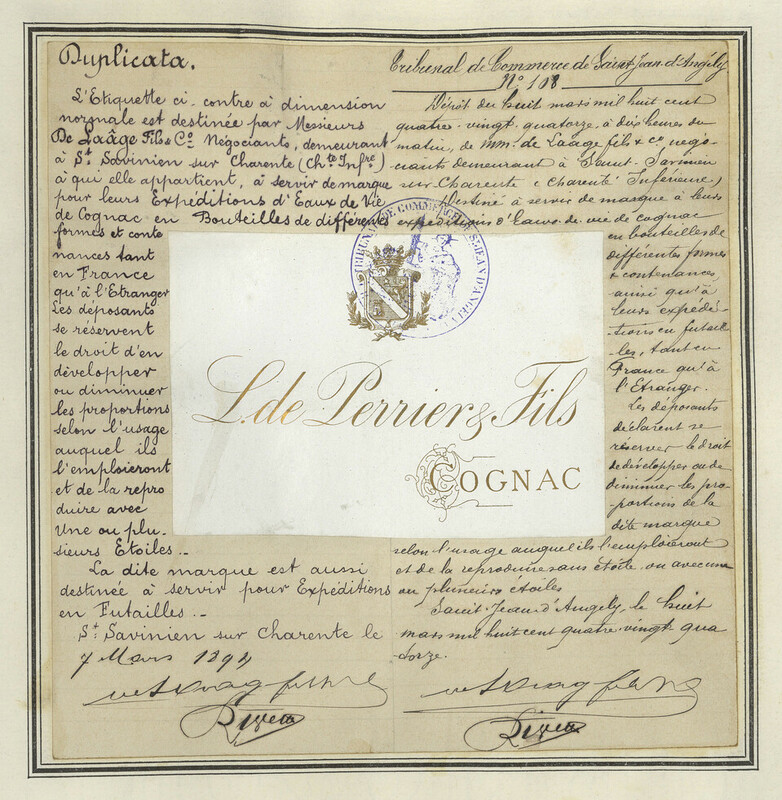 Duplicata.
L'Etiquette ci-contre à dimension
normale est destinée par Messieurs
De Laâge Fils Co. Négociants, demeurant
à St Savinien sur Charente (Chte Infre)
à qui elle appartient, à servir de marque
pour leurs Expéditions d'Eaux de Vie
de Cognac en Bouteilles de différentes
formes et conte
nances tant
en France
qu'à l'Etranger
Les déposants
se réservent
le droit d'en
développer
ou diminuer
les proportions
selon l'usage
auquel ils
l'emploieront
et de la repro
duire avec
une ou plu-
sieurs Etoiles.-
La dite marque est aussi
destinée à servir pour Expéditions
en Futailles.-
St Savinien sur Charente le
7 Mars 1894
Tribunal de Commerce de Saint-Jean-d'Angély
No 108
Dépôt du huit mars mil huit cent
quatre-vingt-quatorze, à dix heures du
matin, de MM. de Laage fils & Co négo-
ciants demeurant à Saint-Savinien
sur Charente (Charente Inférieure)
Destiné à servir de marque à leurs
expéditions d'Eaux-de-vie de cognac
en bouteilles de
différentes formes
& contenances
ainsi qu'à
leurs expédi-
tions en futail-
les, tant en
France qu'à
l'Etranger.
Les déposants
déclarent se
réserver le droit
de développer ou de
diminuer les pro-
portions de la
dite marque
selon l'usage auquel ils l'emploieront
et de la reproduire sans étoile ou avec une
ou plusieurs étoiles
Saint-Jean-d'Angély, le huit
mars mil huit cent quatre-vingt-qua
torze.
TRIBUNAL DE COMMERCE ST JEAN D'ANGELY
L. de Perrier & Fils
COGNAC